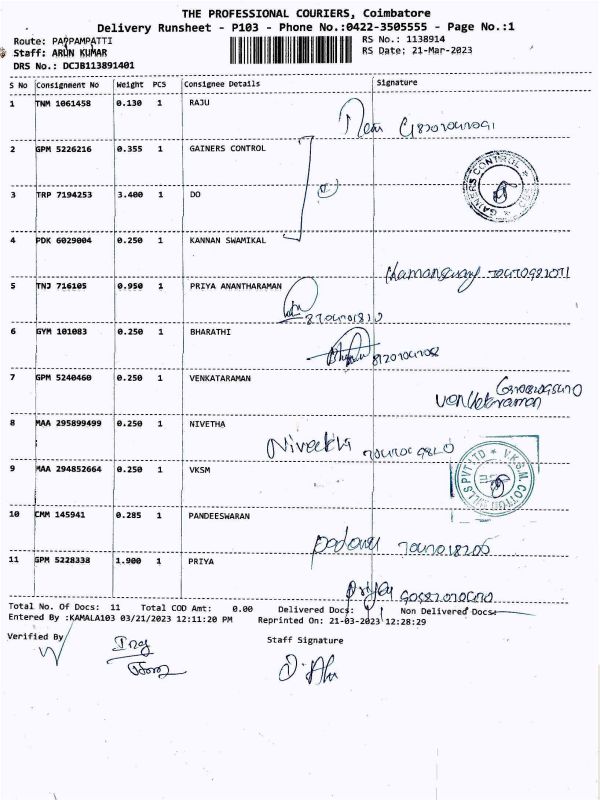 THE PROFESSIONAL COURIERS, Coimbatore
Delivery Runsheet - P103 - Phone No.:0422-3505555 - Page No.:1
Route: PAPPAMPATTI
RS No.: 1138914
Staff: ARUN KUMAR
RS Date: 21-Mar-2023
DRS No.: DCJB113891401
S No Consignment No Weight PCS Consignee Details Signature
1 TNM 1061458 0.130 1 RAJU
2 GPM 5226216 0.355 1 GAINERS CONTROL
GAINERS CONTROL
3 TRP 7194253 3.400 1 DO
4 PDK 6029004 0.250 1 KANNAN SWAMIKAL
5 TNJ 716105 0.950 1 PRIYA ANANTHARAMAN
6 GYM 101083 0.250 1 BHARATHI
7 GPM 5240460 0.250 1 VENKATARAMAN
Venkatraman
8 MAA 295899499 0.250 1 NIVETHA
Nivetha
9 MAA 294852664 0.250 1 VKSM
V.K.S.M. COTTON MILLS PVT LTD
10 CMM 145941 0.285 1 PANDEESWARAN
11 GPM 5228338 1.900 1 PRIYA
Priya
Total No. Of Docs: 11 Total COD Amt: 0.00 Delivered Docs: Non Delivered Docs:
Entered By :KAMALA103 03/21/2023 12:11:20 PM Reprinted On: 21-03-2023 12:28:29
Verified By Staff Signature